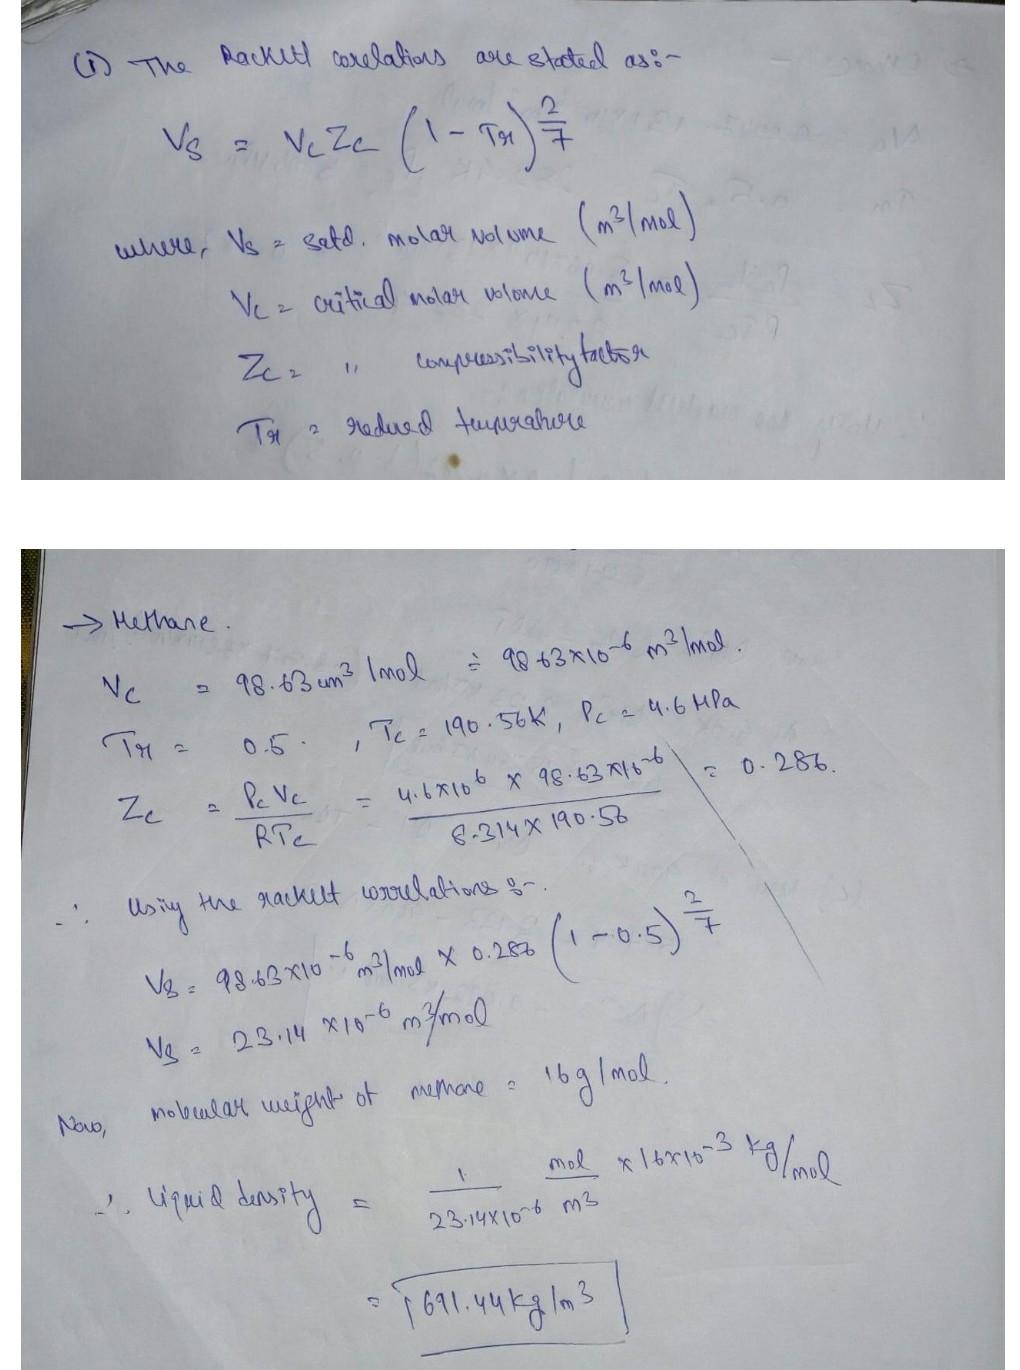 (i) The Rackett corelations are stated as:-
Vs = Vc Zc (1 - Tr)^2/7
where, Vs = satd. molar volume (m³/mol)
Vc = critical molar volume (m³/mol)
Zc = " compressibility factor
Tr = reduced temperature
→ Methane.
Vc = 98.63 cm³/mol = 98.63×10⁻⁶ m³/mol.
Tr = 0.5. , Tc = 190.56K, Pc = 4.6 MPa
Zc = PcVc/RTc = 4.6×10⁶ × 98.63×10⁻⁶ / 8.314×190.56 = 0.286.
∴ Using the rackett correlations :-.
Vs = 98.63×10⁻⁶ m³/mol × 0.286 (1-0.5)^2/7
Vs = 23.14 ×10⁻⁶ m³/mol
Now, molecular weight of methane = 16g/mol.
∴ liquid density = 1/23.14×10⁻⁶ mol/m³ × 16×10⁻³ kg/mol
= 691.44 kg/m³